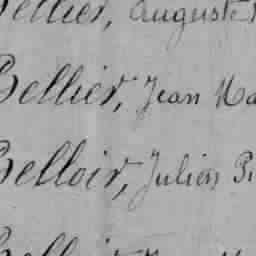 Bellier, Auguste
Bellier, Jean Ma
Belloir, Julien Pi